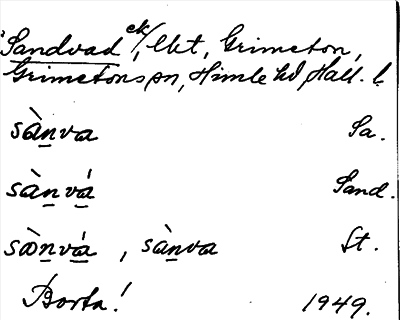 Sandvad ek/, lht, Grimeton,
Grimetons sn, Himle hd Hall. l.
sànva Sa.
sànvá Sand.
sònvá, sànva St.
Borta! 1949.